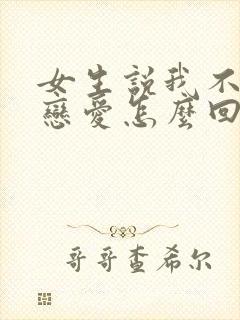 女生説我不
戀愛怎麼回
哥哥查希尔